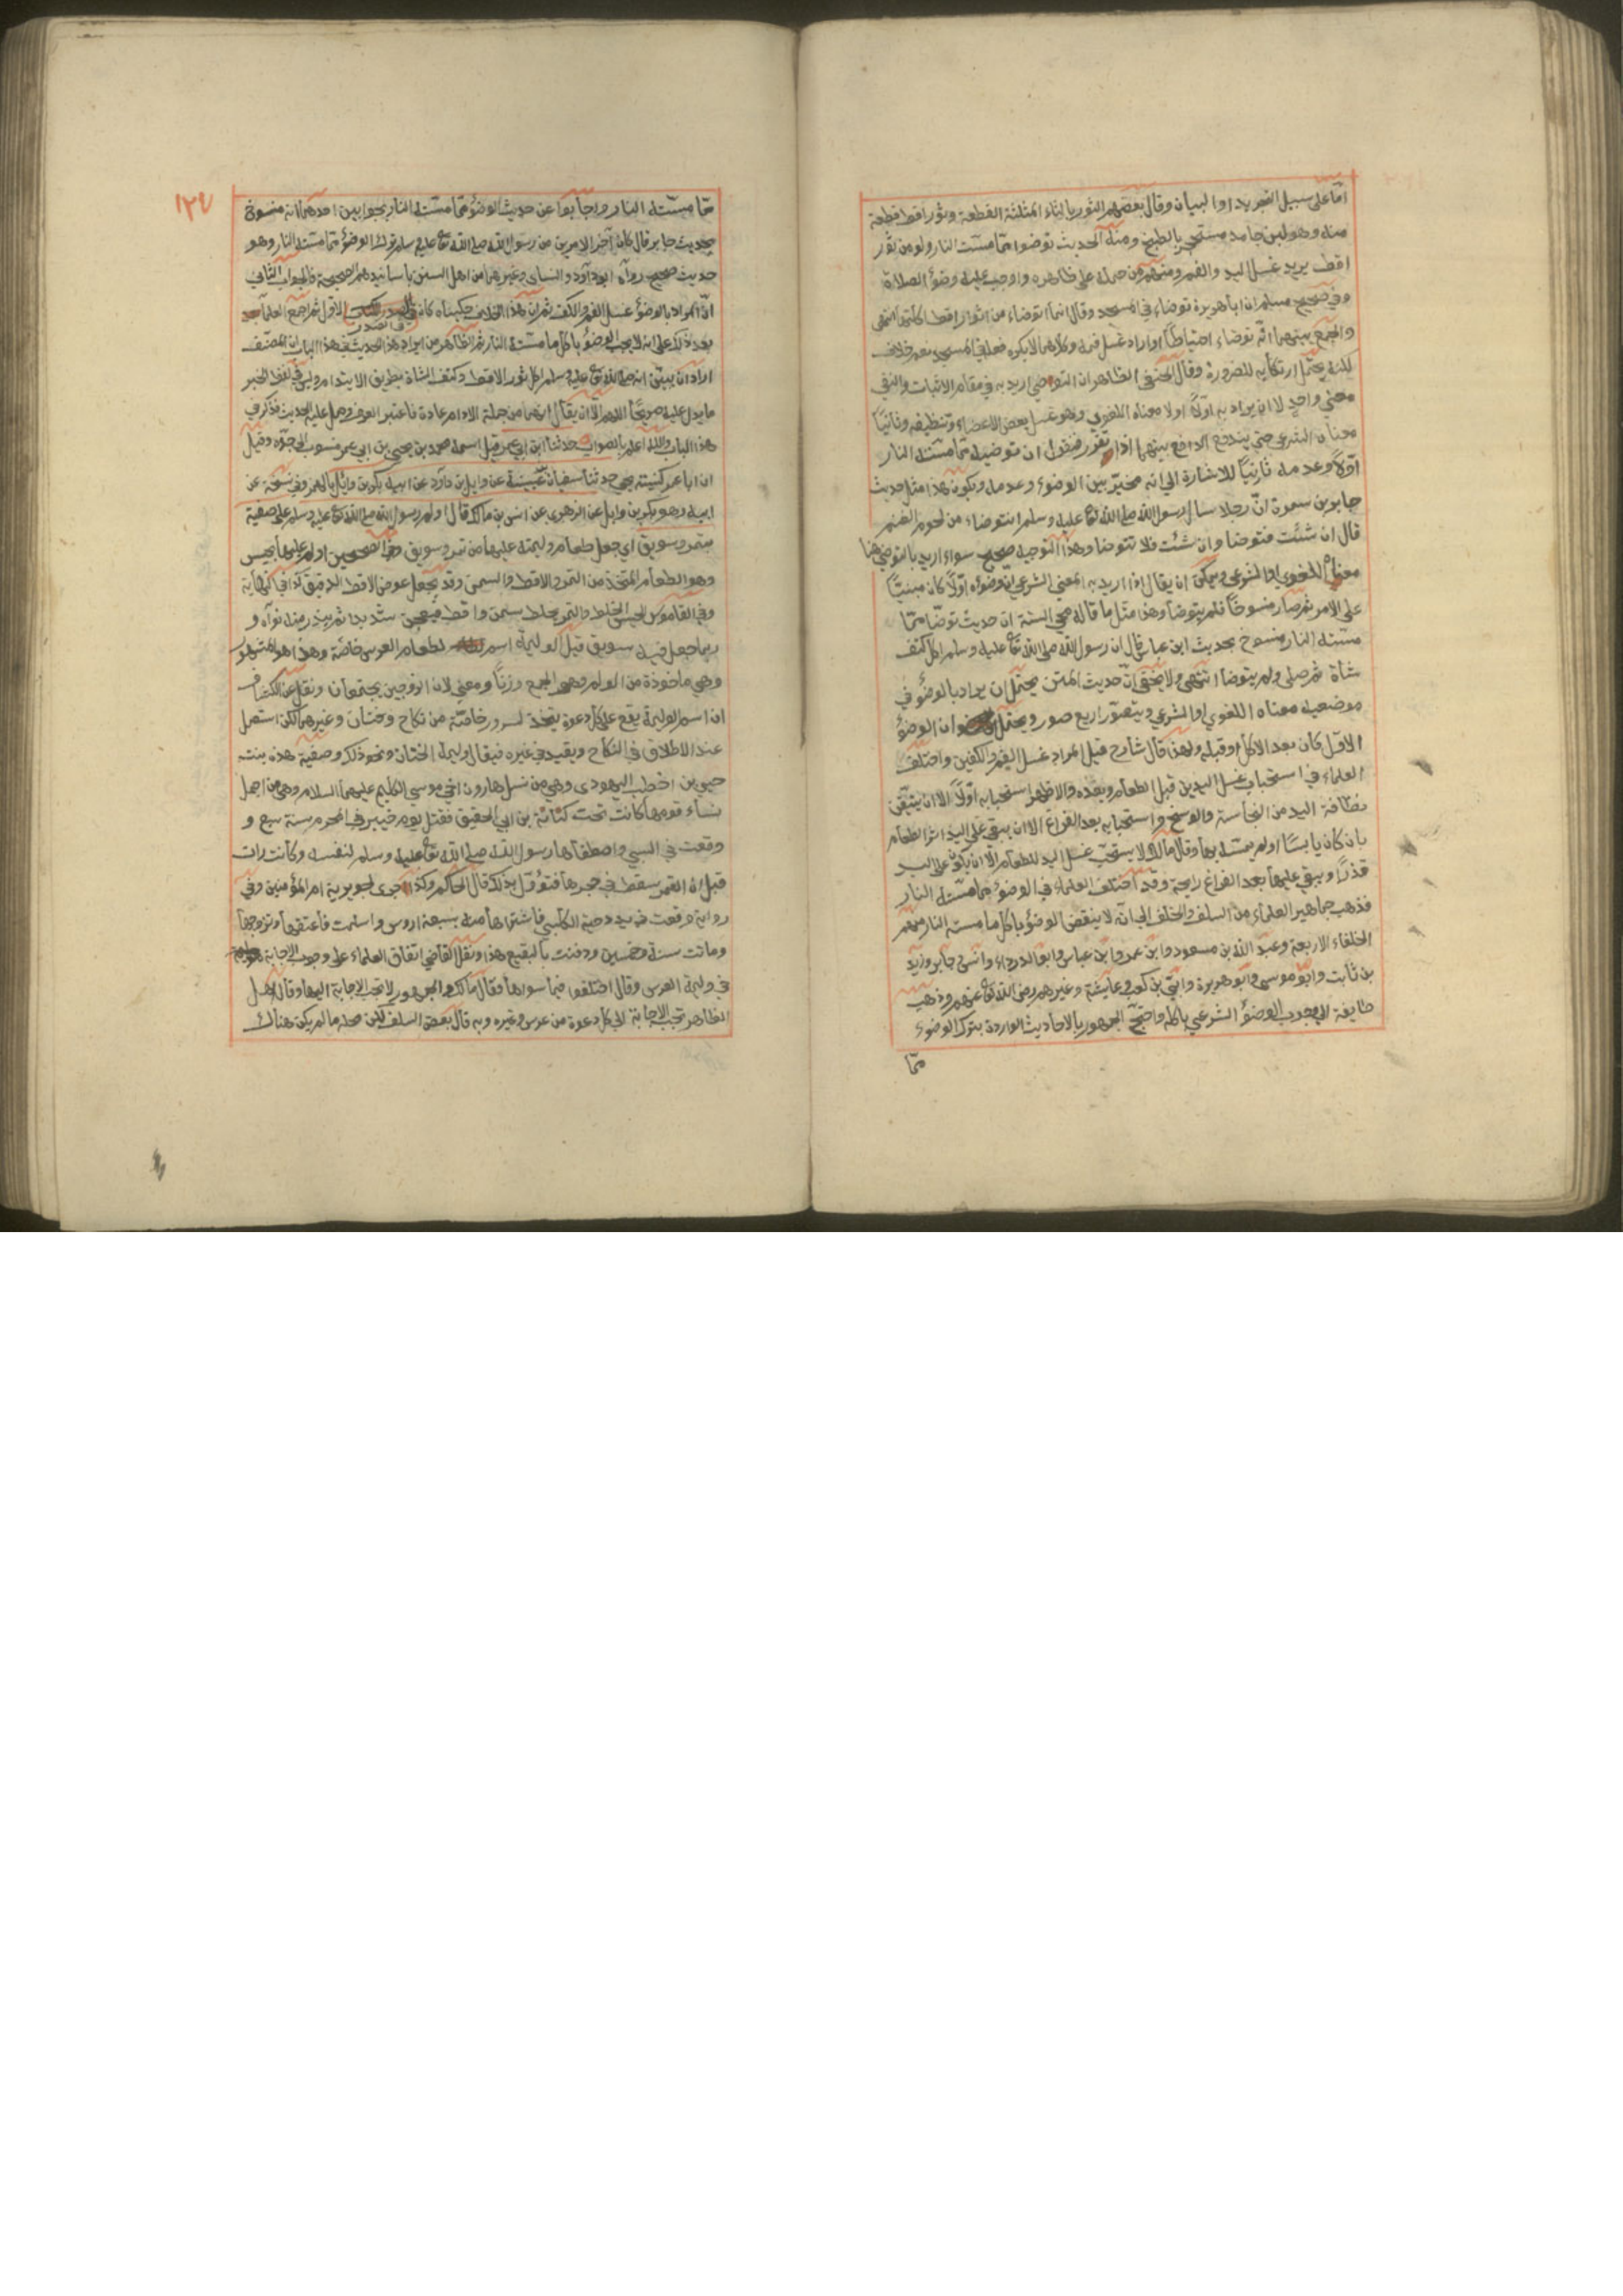 اما على سبيل التجريد او البيان وقال بعضهم الثور بالثاء المثلثة القطعة وثور اقط قطعة
منه وهو لبن جامد مستحجر بالطبخ ومنه الحديث توضوا مما مست النار ولو من ثور
اقط يريد غسل اليد والفم ومنهم من حمله على ظاهره واوجب عليه وضوء الصلاة
وفي صحيح مسلم ان ابا هريرة توضاء في المسجد وقال انما اتوضاء من اثوار اقط اكلتها انتهى
والجمع بينهما انه توضاء احتياطا او اراد غسل فمه وكلاهما لا يكره فعله في المسجد نعم خلاف
لكنه يحتمل ارتكابه للضرورة وقال الحنفي الظاهر ان التوضي اريد به في مقام الاثبات والنفي
معنى واحد لا ان يراد به اولا معناه اللغوي وهو غسل بعض الاعضاء وتنظيفه وثانيا
معناه الشرعي حتى يندفع الدافع بينهما اذا تقرر فنقول ان توضيه مما مسته النار
اولا وعدمه ثانيا للاشارة الى انه مخير بين الوضوء وعدمه ويكون هذا مثل حديث
جابر بن سمرة ان رجلا سال رسول الله صلى الله تعا عليه وسلم انتوضاء من لحوم الغنم
قال ان شئت فتوضا وان شئت فلا تتوضا وهذا التوجيه صحيح سواء اريد بالتوضي هنا
معناه اللغوي او الشرعي ويمكن ان يقال اذا اريد به المعنى الشرعي ان وضوءه اولا كان مبنيا
على الامر ثم صار منسوخا فلم يتوضا وهذا مثل ما قاله محي السنة ان حديث توضا مما
مسته النار منسوخ بحديث ابن عباس قال ان رسول الله صلى الله تعا عليه وسلم اكل كتف
شاة ثم صلى ولم يتوضا انتهى ولا يخفى ان حديث المتن يحتمل ان يراد بالوضوء في
موضعيه معناه اللغوي او الشرعي ويتصور اربع صور ويحتمل ان الوضوء
الاول كان بعد الاكل او قبله ولهذا قال شارح قيل المراد غسل الفم والكفين واختلف
العلماء في استحباب غسل اليدين قبل الطعام وبعده والاظهر استحبابه اولا الا ان يتيقن
نظافة اليد من النجاسة والوسخ واستحبابه بعد الفراغ الا ان يبقى على اليد اثر الطعام
بان كان يابسا او لم يمسه بها وقال مالك لا يستحب غسل اليد للطعام الا ان يكون على اليد
قذرا ويبقى عليها بعد الفراغ رايحة وقد اختلف العلماء في الوضوء مما مسته النار
فذهب جماهير العلماء من السلف والخلف الى انه لا ينقض الوضوء باكل ما مسته النار منهم
الخلفاء الاربعة وعبد الله بن مسعود وابن عمر وابن عباس وابو الدرداء وانس وجابر وزيد
بن ثابت وابو موسى وابو هريرة وابي بن كعب وعايشة وغيرهم رضى الله تعا عنهم وذهب
طايفة الى وجوب الوضوء الشرعي باكله واحتج الجمهور بالاحاديث الواردة بترك الوضوء
مما
١٢٧
مما مسته النار واجابوا عن حديث الوضوء مما مسته النار بجوابين احدهما انه منسوخ
بحديث جابر قال كان آخر الامرين من رسول الله صلى الله تعا عليه وسلم ترك الوضوء مما مسته النار وهو
حديث صحيح رواه ابو داود والنساي وغيرهما من اهل السنن باسانيدهم الصحيحة والجواب الثاني
ان المراد بالوضوء غسل الفم والكف ثم ان هذا الخلاف حكيناه كان في الصدر الاول ثم اجمع العلماء
بعد ذلك على انه لا يجب الوضوء باكل ما مسته النار ثم الظاهر من ايراد هذا الحديث في هذا الباب ان المصنف
اراد ان يبين انه صلى الله تعا عليه وسلم اكل ثور الاقط وكتف الشاة بطريق الايتدام وليس في لفظ الخبر
ما يدل عليه صريحا اللهم الا ان يقال انهما من جملة الادام عادة فاعتبر العرف وحمل عليه الحديث فذكر في
هذا الباب والله اعلم بالصواب حدثنا ابن ابي عمر قيل اسمه محمد بن يحيى بن ابي عمر منسوب الى جده وقيل
ان ابا عمر كنيته يحيى حدثنا سفيان بن عيينة عن وايل بن داود عن ابيه بكر بن وائل بالهمز وفي نسخة عن
ابيه وهو بكر بن وايل عن الزهري عن انس بن مالك قال اولم رسول الله صلى الله تعا عليه وسلم على صفية
بتمر وسويق اي جعل طعام وليمته عليها من تمر وسويق وفي الصحيحين اولم عليها بحيس
وهو الطعام المتخذ من التمر والاقط والسمن وقد يجعل عوض الاقط الدقيق كذا في النهاية
وفي القاموس الحيس الخلط والتمر يخلط بسمن واقط فيعجن شديدا ثم يندر منه نواه و
ربما جعل فيه سويق قيل الوليمة اسم لطعام العرس خاصة وهذا هو المشهور
وهي ماخوذة من الولم وهو الجمع وزنا ومعنى لان الزوجين يجتمعان ونقل عن الكشاف
ان اسم الوليمة يقع على كل دعوة يتخذ لسرور خاصة من نكاح وختان وغيرهما لكن استعمل
عند الاطلاق في النكاح ويقيد في غيره فيقال وليمة الختان ونحو ذلك وصفية هذه بنت
حيي بن اخطب اليهودى وهي من نسل هارون اخي موسى الكليم عليهما السلام وهي من اجمل
نساء قومها كانت تحت كنانة بن ابي الحقيق فقتل يوم خيبر في المحرم سنة سبع و
وقعت في السبي واصطفاها رسول الله صلى الله تعا عليه وسلم لنفسه وكانت رات
قبل ان القمر سقط في حجرها فتؤول بذلك قال الحاكم وكذا جرى لجويرية ام المؤمنين وفي
رواية وقعت في يد دحية الكلبي فاشتراها منه بسبعة اروس واسلمت فاعتقها وتزوجها
وماتت سنة خمسين ودفنت بالبقيع هذا ونقل القاضي اتفاق العلماء على وجوب الاجابة
في وليمة العرس وقال اختلفوا فيما سواها وقال مالك والجمهور لا تجب الاجابة اليها وقال اهل
الظاهر تجب الاجابة الى كل دعوة من عرس وغيره وبه قال بعض السلف لكن محله ما لم يكن هناك